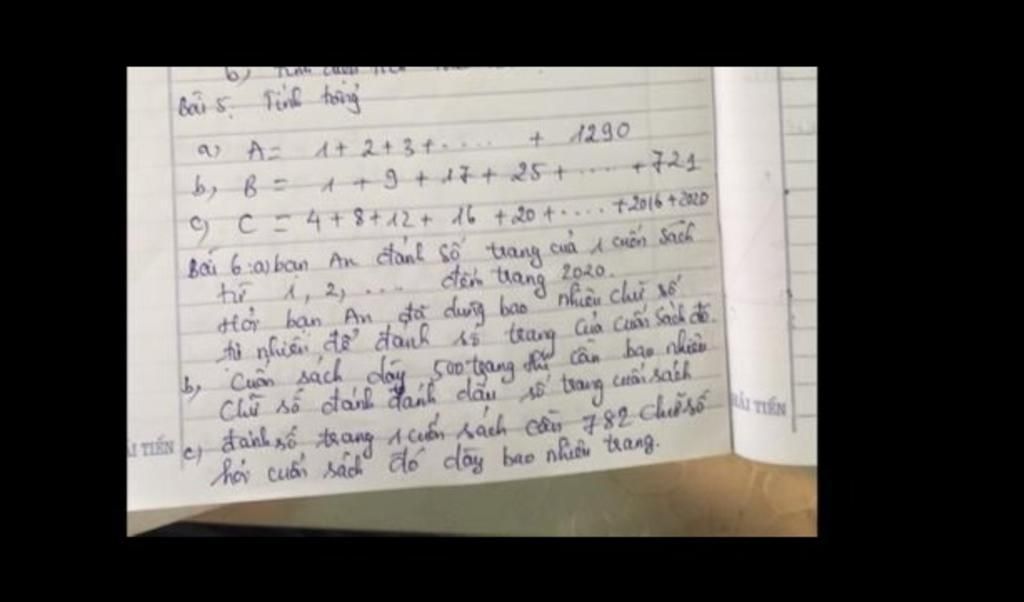 b)
Bài 5. Tính tổng
a) A = 1 + 2 + 3 + ..... + 1290
b, B = 1 + 9 + 17 + 25 + .... + 721
c) C = 4 + 8 + 12 + 16 + 20 + .... + 2016 + 2020
Bài 6: a) bạn An đánh số trang của 1 cuốn sách
từ 1, 2, .... đến trang 2020.
Hỏi bạn An đã dùng bao nhiêu chữ số
tự nhiên để đánh số trang của cuốn sách đó.
b, Cuốn sách dày 500 trang thì cần bao nhiêu
chữ số đánh đánh dấu số trang cuốn sách
c) đánh số trang 1 cuốn sách cần 782 chữ số
hỏi cuốn sách đó dày bao nhiêu trang.
ẢI TIẾN
HẢI TIẾN